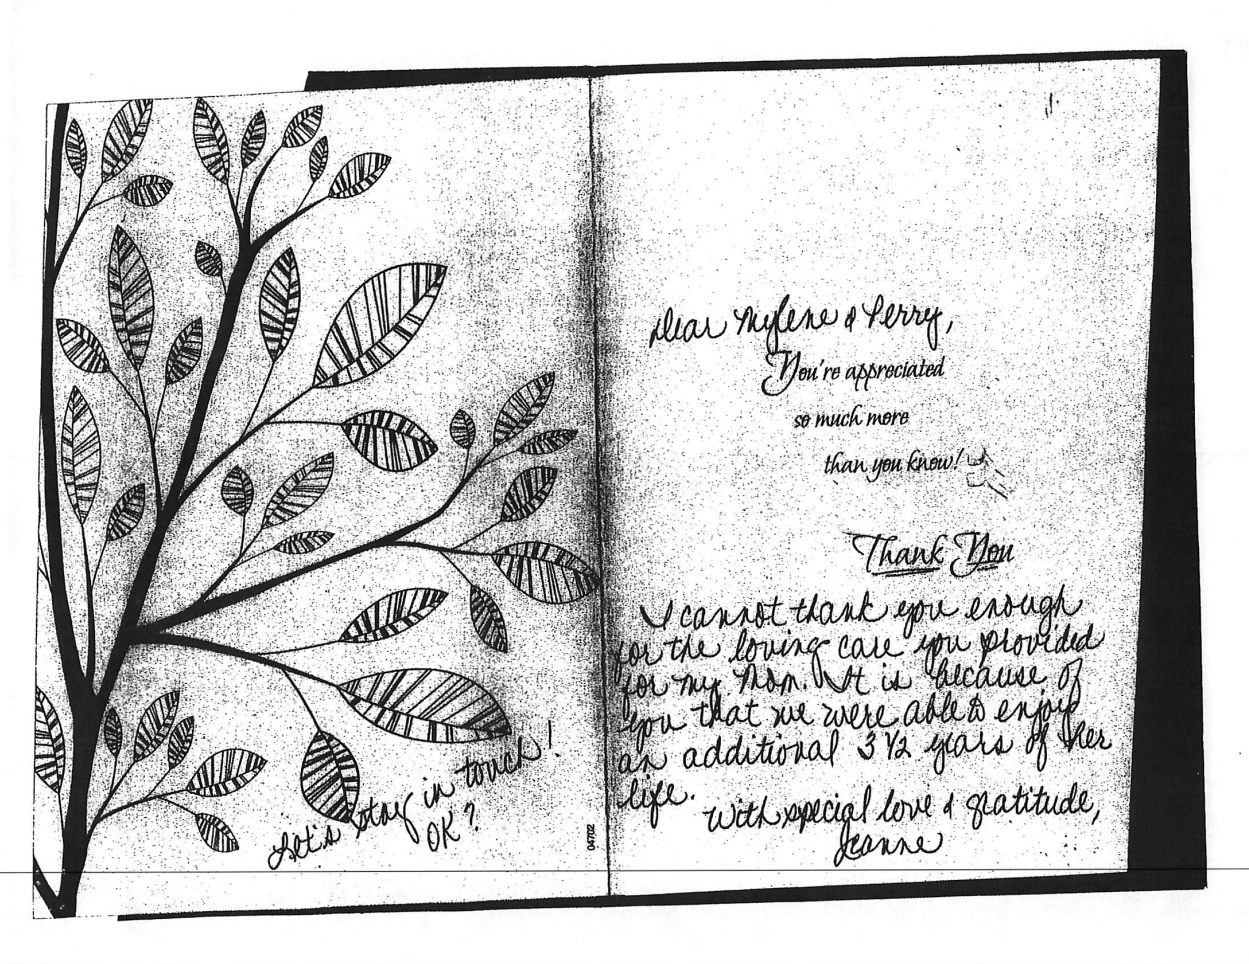 Let's stay in touch!
OK?
04702
Dear Mylene & Perry,
You're appreciated
so much more
than you know!
Thank You
I cannot thank you enough
for the loving care you provided
for my Mom. It is because of
you that we were able to enjoy
an additional 3 1/2 years of her
life.
With special love & gratitude,
Jeanne